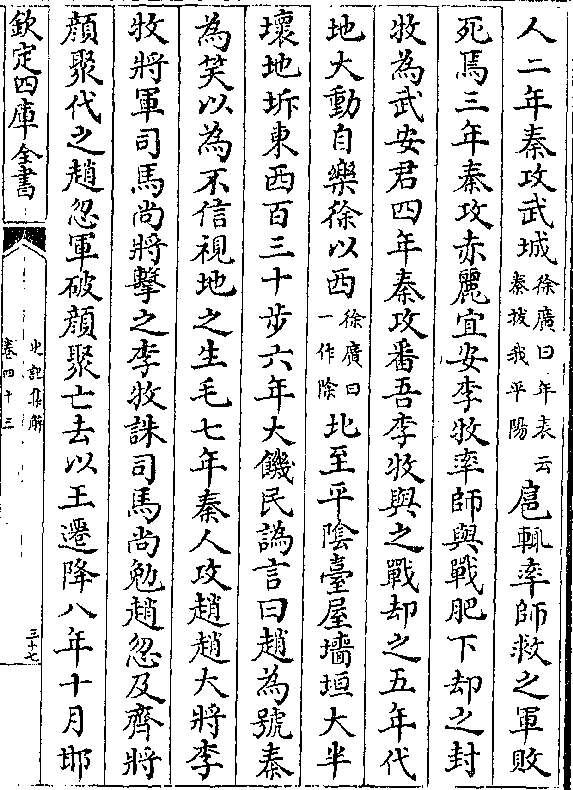 人二年秦攻武城徐廣曰年表云秦拔我平陽扈輒率師救之軍敗
死焉三年秦攻赤麗宜安李牧率師與戰肥下却之封
牧為武安君四年秦攻番吾李牧與之戰却之五年代
地大動自樂徐以西徐廣曰一作除北至平陰臺屋墻垣大半
壞地坼東西百三十步六年大饑民譌言曰趙為號秦
為笑以為不信視地之生毛七年秦人攻趙趙大將李
牧將軍司馬尚將擊之李牧誅司馬尚勉趙忽及齊將
顔聚代之趙忽軍破顔聚亡去以王遷降八年十月邯
欽定四庫全書
史記集解
卷四十三
三十七